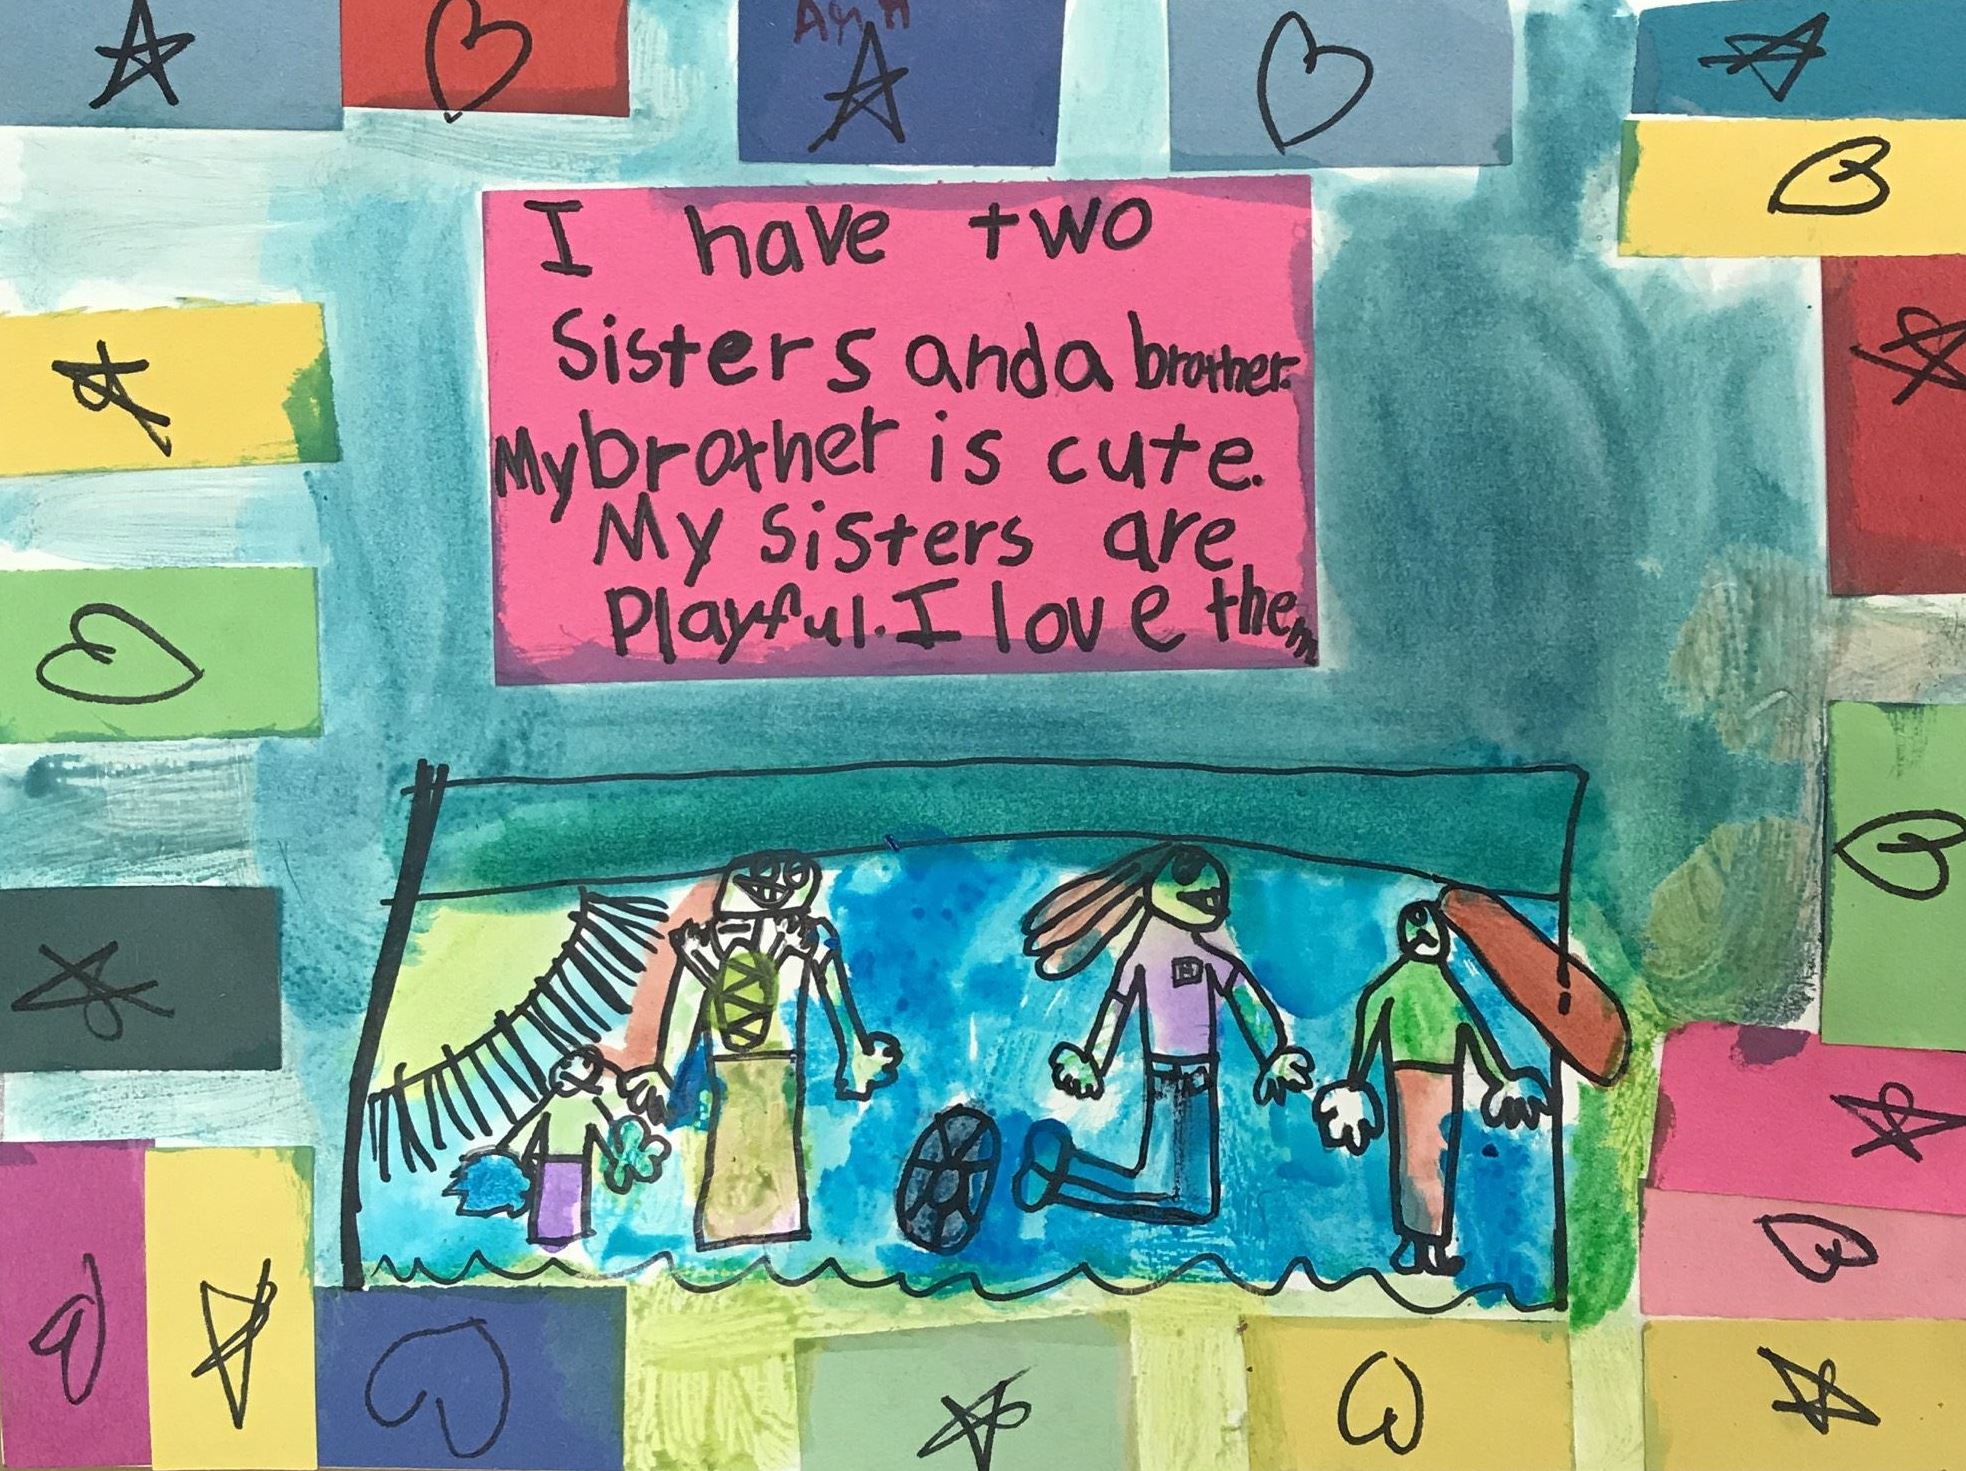 I have two
Sisters and a brother.
My brother is cute.
My Sisters are
Playful. I love them